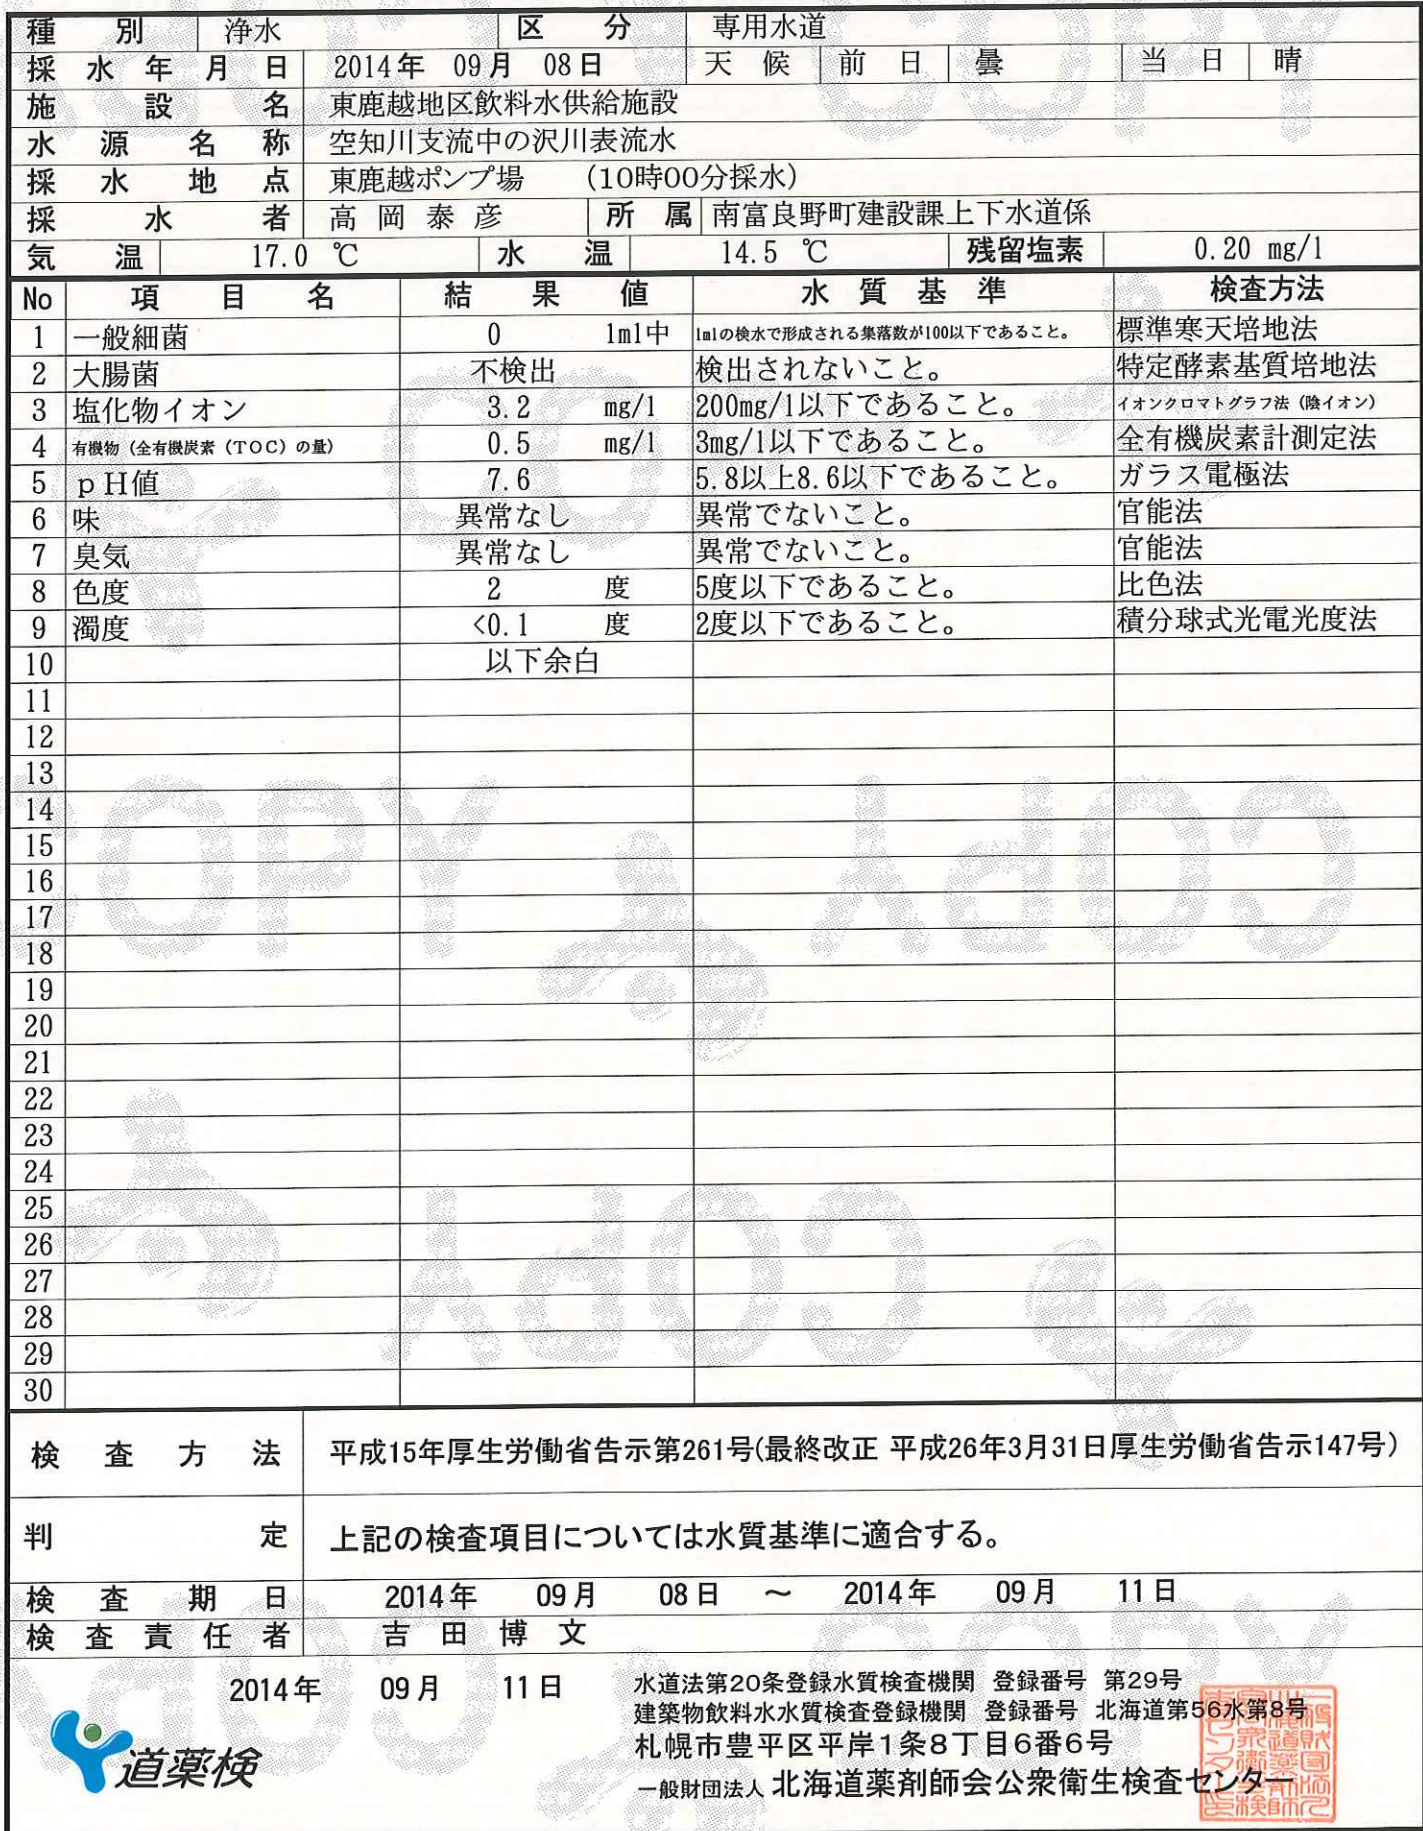 種別 浄水 区分 専用水道
採水年月日 2014年 09月 08日 天候 前日 曇 当日 晴
施設名 東鹿越地区飲料水供給施設
水源名称 空知川支流中の沢川表流水
採水地点 東鹿越ポンプ場 (10時00分採水)
採水者 高岡泰彦 所属 南富良野町建設課上下水道係
気温 17.0 ℃ 水温 14.5 ℃ 残留塩素 0.20 mg/l
No 項目名 結果値 水質基準 検査方法
1 一般細菌 0 1ml中 1mlの検水で形成される集落数が100以下であること。 標準寒天培地法
2 大腸菌 不検出 検出されないこと。 特定酵素基質培地法
3 塩化物イオン 3.2 mg/l 200mg/l以下であること。 イオンクロマトグラフ法(陰イオン)
4 有機物(全有機炭素(TOC)の量) 0.5 mg/l 3mg/l以下であること。 全有機炭素計測定法
5 pH値 7.6 5.8以上8.6以下であること。 ガラス電極法
6 味 異常なし 異常でないこと。 官能法
7 臭気 異常なし 異常でないこと。 官能法
8 色度 2 度 5度以下であること。 比色法
9 濁度 <0.1 度 2度以下であること。 積分球式光電光度法
10 以下余白
11
12
13
14
15
16
17
18
19
20
21
22
23
24
25
26
27
28
29
30
検査方法 平成15年厚生労働省告示第261号(最終改正 平成26年3月31日厚生労働省告示147号)
判定 上記の検査項目については水質基準に適合する。
検査期日 2014年 09月 08日 ～ 2014年 09月 11日
検査責任者 吉田博文
2014年 09月 11日
水道法第20条登録水質検査機関 登録番号 第29号
建築物飲料水水質検査登録機関 登録番号 北海道第56水第8号
札幌市豊平区平岸1条8丁目6番6号
一般財団法人 北海道薬剤師会公衆衛生検査センター
道薬検